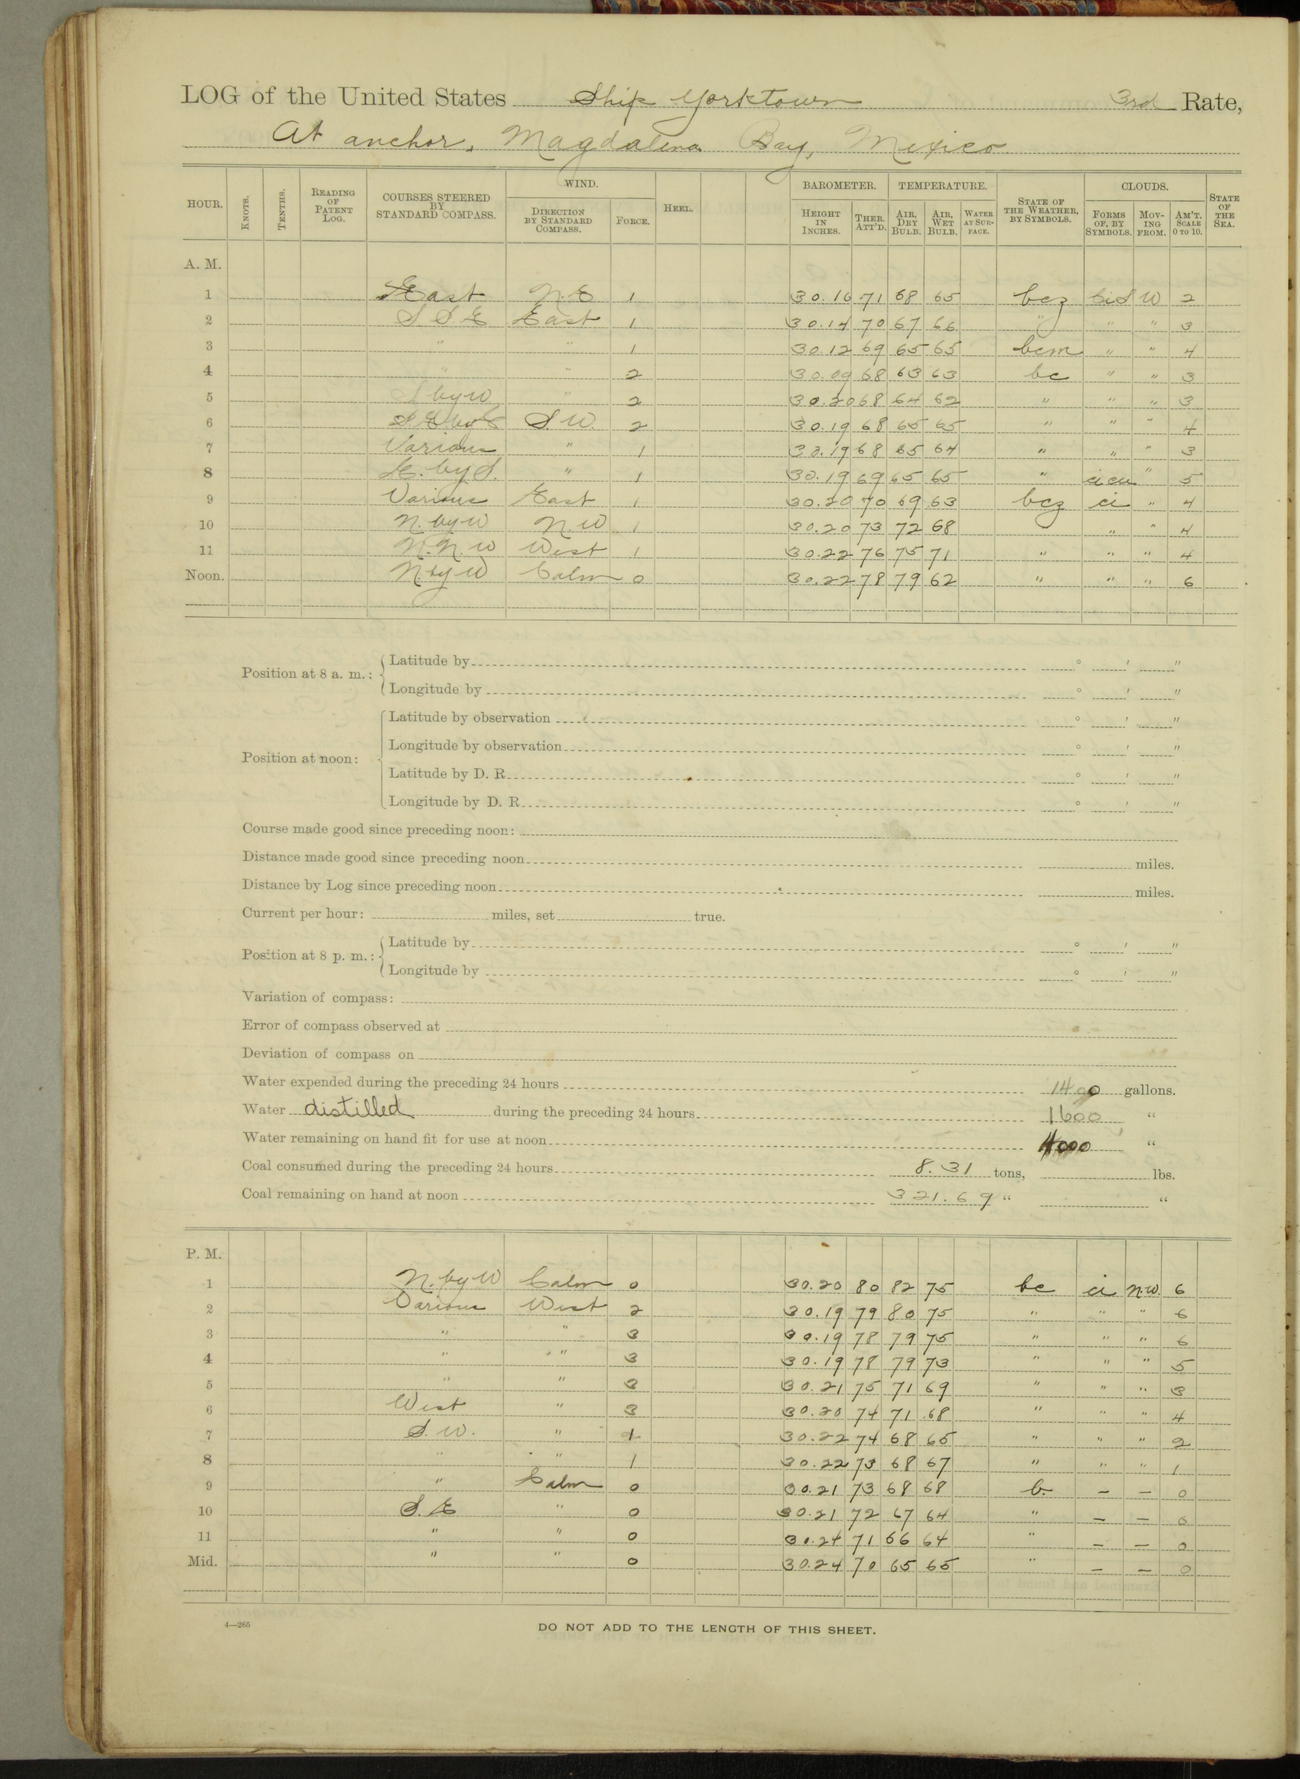 LOG of the United States Ship Yorktown 3rd Rate,
At anchor, Magdalena Bay, Mexico
HOUR. KNOTS. TENTHS. READING OF PATENT LOG. COURSES STEERED BY STANDARD COMPASS. WIND. DIRECTION BY STANDARD COMPASS. FORCE. HEEL. BAROMETER. HEIGHT IN INCHES. THER. ATT'D. TEMPERATURE. AIR, DRY BULB. AIR, WET BULB. WATER AT SURFACE. STATE OF THE WEATHER, BY SYMBOLS. CLOUDS. FORMS OF, BY SYMBOLS. MOVING FROM. AM'T. SCALE 0 TO 10. STATE OF THE SEA.
A. M.
1 East N.E 1 30.16 71 68 65 bcz CiS W 2
2 S S E East 1 30.14 70 67 66 " " " 3
3 " " 1 30.12 69 65 65 bcm " " 4
4 " " 2 30.09 68 63 63 bc " " 3
5 S by W " 2 30.20 68 64 62 " " " 3
6 S.W. 2 30.19 68 65 65 " " " 4
7 Various " 1 30.19 68 65 64 " " " 3
8 E. by S. " 1 30.19 69 65 65 " ci cu " 5
9 Various East 1 30.20 70 69 63 bcz ci " 4
10 N. by W N.W 1 30.20 73 72 68 " " 4
11 N.N.W West 1 30.22 76 75 71 " " " 4
Noon. N by W Calm 0 30.22 78 79 62 " " " 6
Position at 8 a. m.: Latitude by ° ' "
Longitude by ° ' "
Position at noon: Latitude by observation ° ' "
Longitude by observation ° ' "
Latitude by D. R. ° ' "
Longitude by D. R. ° ' "
Course made good since preceding noon:
Distance made good since preceding noon miles.
Distance by Log since preceding noon miles.
Current per hour: miles, set true.
Position at 8 p. m.: Latitude by ° ' "
Longitude by ° ' "
Variation of compass:
Error of compass observed at
Deviation of compass on
Water expended during the preceding 24 hours 1400 gallons.
Water distilled during the preceding 24 hours 1600 "
Water remaining on hand fit for use at noon 4000 "
Coal consumed during the preceding 24 hours 8.31 tons, lbs.
Coal remaining on hand at noon 321.69 " "
P. M.
1 N. by W Calm 0 30.20 80 82 75 bc ci N.W. 6
2 Various West 2 30.19 79 80 75 " " " 6
3 " " 3 30.19 78 79 75 " " " 6
4 " " 3 30.19 78 79 73 " " " 5
5 " " 3 30.21 75 71 69 " " " 3
6 West " 3 30.20 74 71 68 " " " 4
7 S.W. " 1 30.22 74 68 65 " " " 2
8 " " 1 30.22 73 68 67 " " " 1
9 " Calm 0 30.21 73 68 68 b. — — 0
10 S.E " 0 30.21 72 67 64 " — — 0
11 " " 0 30.24 71 66 64 " — — 0
Mid. " " 0 30.24 70 65 65 " — — 0
4—265
DO NOT ADD TO THE LENGTH OF THIS SHEET.